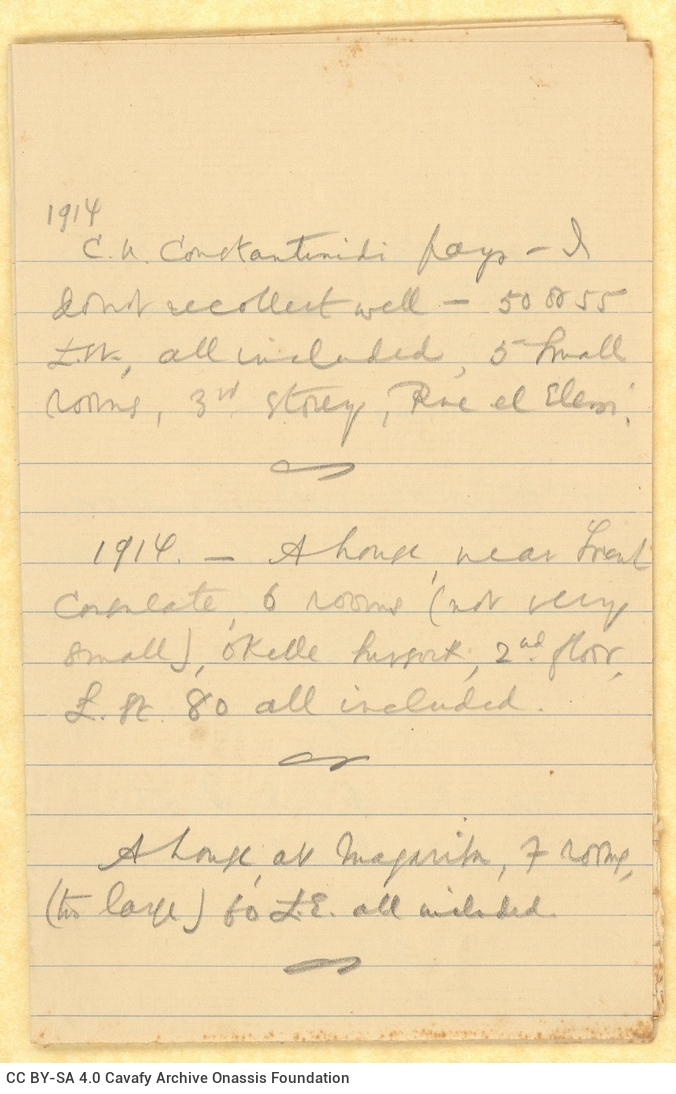 1914
C. N. Constantinidi pays – I
don't recollect well – 50 or 55
L. st., all included, 5 small
rooms, 3rd storey, Rue el
1914. – A house, near French
Consulate, 6 rooms (not very
small), Okelle 2nd floor,
L. st. 80 all included.
A house at Mazarita, 7 rooms,
(two large) 60 L.E. all included.
CC BY-SA 4.0 Cavafy Archive Onassis Foundation